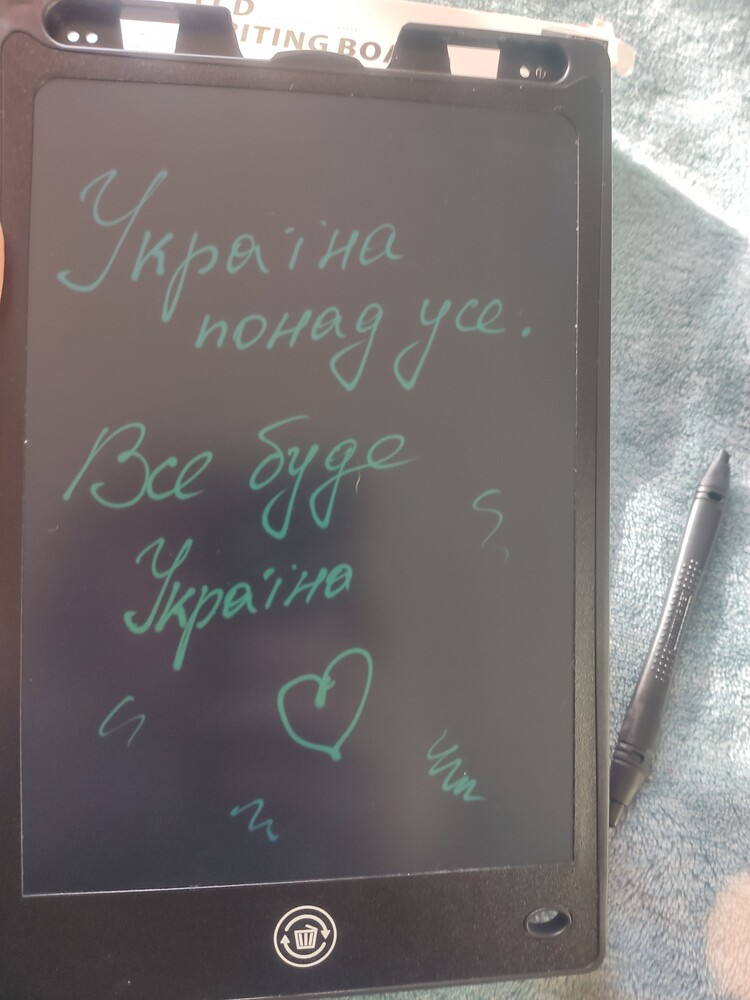 LCD
WRITING BOA
Україна
понад усе.
Все буде
Україна